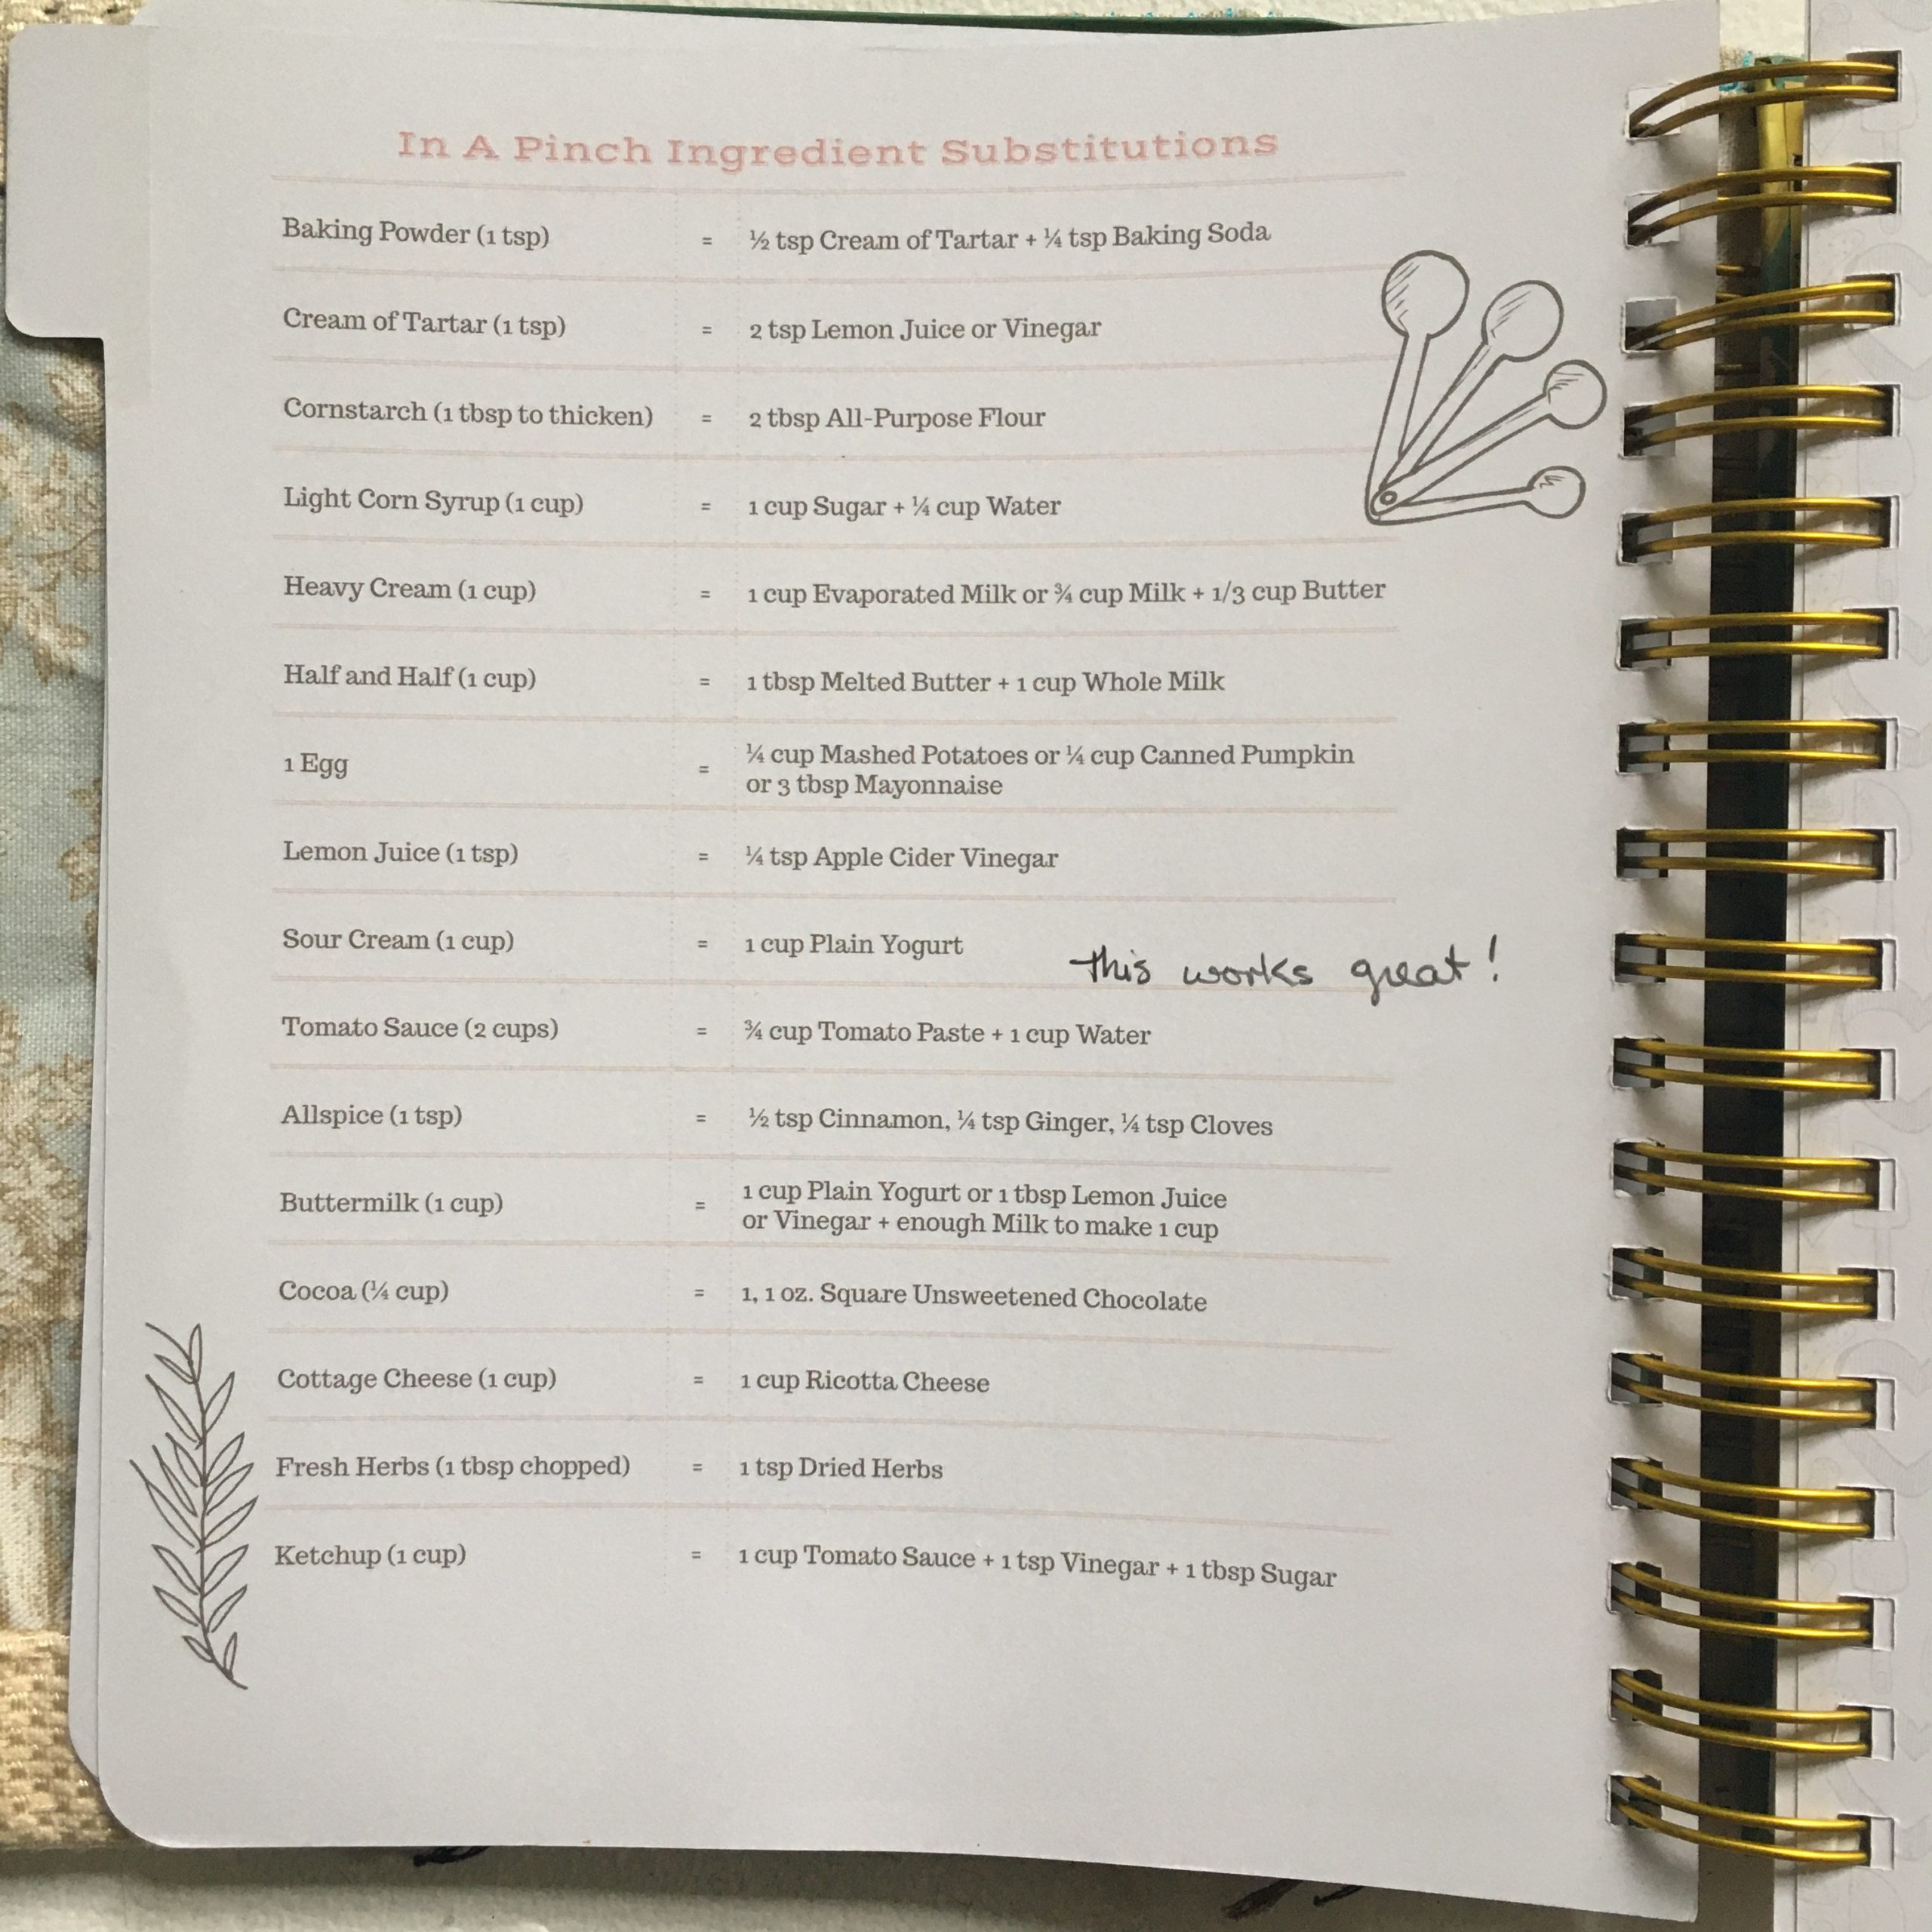 In A Pinch Ingredient Substitutions
Baking Powder (1 tsp) = ½ tsp Cream of Tartar + ¼ tsp Baking Soda
Cream of Tartar (1 tsp) = 2 tsp Lemon Juice or Vinegar
Cornstarch (1 tbsp to thicken) = 2 tbsp All-Purpose Flour
Light Corn Syrup (1 cup) = 1 cup Sugar + ¼ cup Water
Heavy Cream (1 cup) = 1 cup Evaporated Milk or ¾ cup Milk + 1/3 cup Butter
Half and Half (1 cup) = 1 tbsp Melted Butter + 1 cup Whole Milk
1 Egg = ¼ cup Mashed Potatoes or ¼ cup Canned Pumpkin
or 3 tbsp Mayonnaise
Lemon Juice (1 tsp) = ¼ tsp Apple Cider Vinegar
Sour Cream (1 cup) = 1 cup Plain Yogurt this works great!
Tomato Sauce (2 cups) = ¾ cup Tomato Paste + 1 cup Water
Allspice (1 tsp) = ½ tsp Cinnamon, ¼ tsp Ginger, ¼ tsp Cloves
Buttermilk (1 cup) = 1 cup Plain Yogurt or 1 tbsp Lemon Juice
or Vinegar + enough Milk to make 1 cup
Cocoa (¼ cup) = 1, 1 oz. Square Unsweetened Chocolate
Cottage Cheese (1 cup) = 1 cup Ricotta Cheese
Fresh Herbs (1 tbsp chopped) = 1 tsp Dried Herbs
Ketchup (1 cup) = 1 cup Tomato Sauce + 1 tsp Vinegar + 1 tbsp Sugar